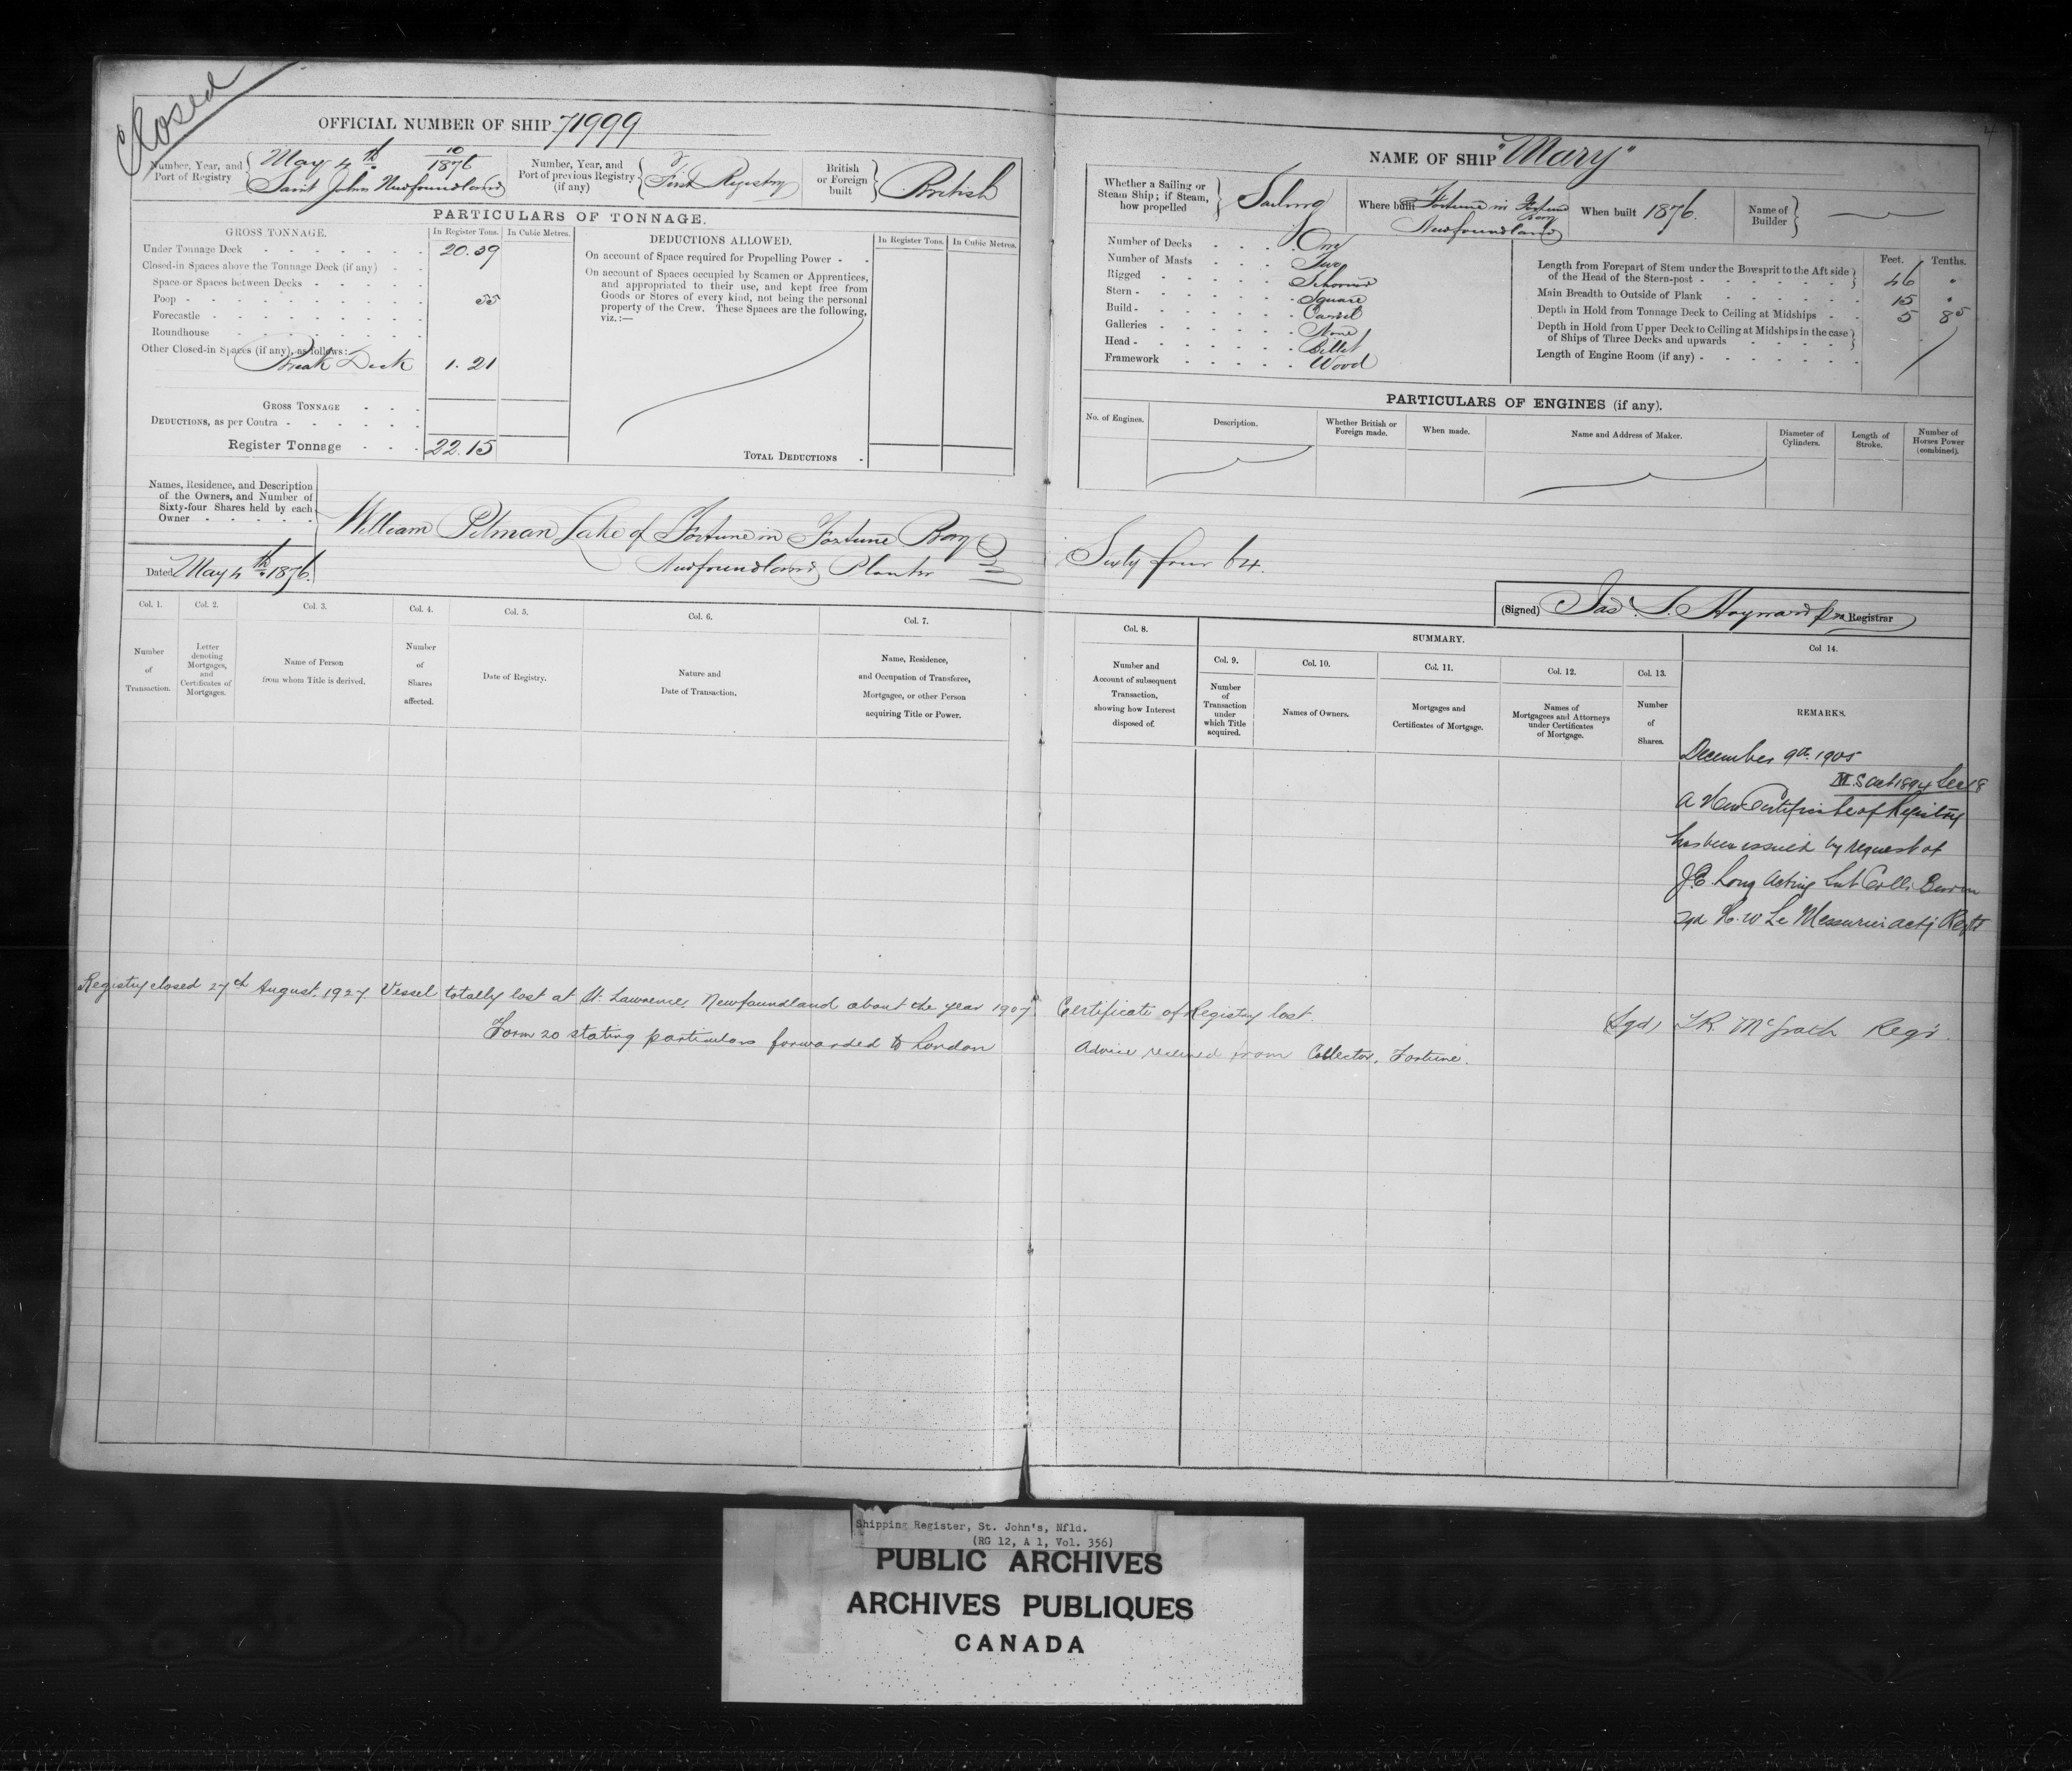 Closed
OFFICIAL NUMBER OF SHIP 71999
Number, Year, and Port of Registry { May 4th 10/1876 Saint Johns Newfoundland
Number, Year, and Port of previous Registry (if any) { First Registry
British or Foreign built } British
PARTICULARS OF TONNAGE.
GROSS TONNAGE. In Register Tons. In Cubic Metres.
Under Tonnage Deck 20.39
Closed-in Spaces above the Tonnage Deck (if any)
Space or Spaces between Decks
Poop 55
Forecastle
Roundhouse
Other Closed-in Spaces (if any), as follows:
Break Deck 1.21
GROSS TONNAGE
DEDUCTIONS, as per Contra
Register Tonnage 22.15
DEDUCTIONS ALLOWED. In Register Tons. In Cubic Metres.
On account of Space required for Propelling Power
On account of Spaces occupied by Seamen or Apprentices,
and appropriated to their use, and kept free from
Goods or Stores of every kind, not being the personal
property of the Crew. These Spaces are the following,
viz.:—
TOTAL DEDUCTIONS
Names, Residence, and Description
of the Owners, and Number of
Sixty-four Shares held by each
Owner
William Pitman Lake of Fortune in Fortune Bay
Newfoundland Planter
Dated May 4th 1876.
Col. 1. Col. 2. Col. 3. Col. 4. Col. 5. Col. 6. Col. 7.
Number of Transaction.
Letter denoting Mortgages, and Certificates of Mortgages.
Name of Person from whom Title is derived.
Number of Shares affected.
Date of Registry.
Nature and Date of Transaction.
Name, Residence, and Occupation of Transferee, Mortgagee, or other Person acquiring Title or Power.
Registry closed 27th August. 1927. Vessel totally lost at St. Lawrence, Newfoundland about the year 1907
Form 20 stating particulars forwarded to London
4
NAME OF SHIP "Mary"
Whether a Sailing or Steam Ship; if Steam, how propelled } Sailing
Where built Fortune in Fortune Bay Newfoundland
When built 1876.
Name of Builder }
Number of Decks One
Number of Masts Two
Rigged Schooner
Stern Square
Build Carvel
Galleries None
Head Billet
Framework Wood
Feet. Tenths.
Length from Forepart of Stem under the Bowsprit to the Aft side
of the Head of the Stern-post 46 "
Main Breadth to Outside of Plank 15 "
Depth in Hold from Tonnage Deck to Ceiling at Midships 5 85
Depth in Hold from Upper Deck to Ceiling at Midships in the case
of Ships of Three Decks and upwards
Length of Engine Room (if any)
PARTICULARS OF ENGINES (if any).
No. of Engines.
Description.
Whether British or Foreign made.
When made.
Name and Address of Maker.
Diameter of Cylinders.
Length of Stroke.
Number of Horses Power (combined).
Sixty four 64.
(Signed) Jas. S. Hayward Registrar
Col. 8. SUMMARY. Col 14.
Col. 9. Col. 10. Col. 11. Col. 12. Col. 13.
Number and Account of subsequent Transaction, showing how Interest disposed of.
Number of Transaction under which Title acquired.
Names of Owners.
Mortgages and Certificates of Mortgage.
Names of Mortgagees and Attorneys under Certificates of Mortgage.
Number of Shares.
REMARKS.
December 9th 1905
M.S. Act 1894 Sec 18
A New Certificate of Registry
has been issued by request of
J.C. Long Acting Sub Coll: Burin
Sgd H. W Le Messurier actg Regtr
Certificate of Registry lost.
(Sgd) McGrath Regr.
Advice received from Collector, Fortune.
Shipping Register, St. John's, Nfld.
(RG 12, A 1, Vol. 356)
PUBLIC ARCHIVES
ARCHIVES PUBLIQUES
CANADA